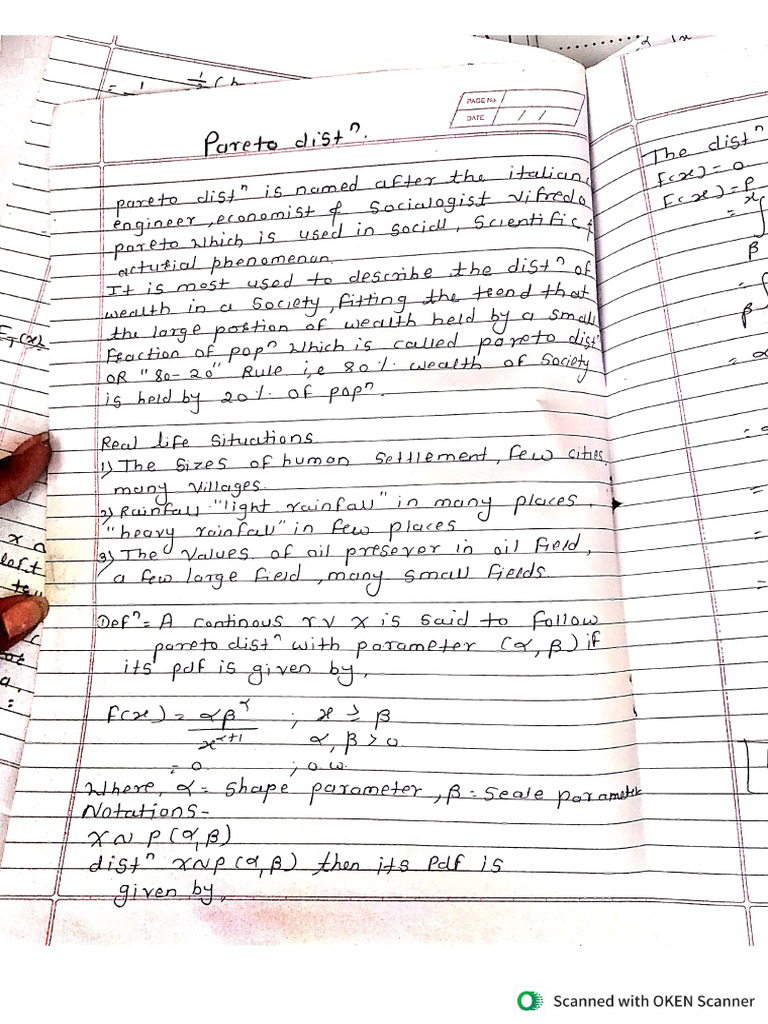 PAGE No.
DATE / /
Pareto distⁿ.
pareto distⁿ is named after the italian
engineer, economist & Socialogist vifredo
pareto which is used in social, Scientific &
actutial phenomenon.
It is most used to describe the distⁿ of
wealth in a Society, fitting the trend that
the large portion of wealth held by a small
Fraction of popⁿ which is called pareto distⁿ
OR "80-20" Rule i,e 80% wealth of Society
is held by 20% of popⁿ.
Real life situations
1) The sizes of human settlement, few cities,
many villages.
2) Rainfall "light rainfall" in many places,
"heavy rainfall" in few places
3) The values of oil presever in oil field,
a few large field, many small fields.
Defⁿ = A continous r v X is said to follow
pareto distⁿ with parameter (α, β) if
its pdf is given by,
f(x) = αβ^α / x^(α+1) ; x ≥ β
α, β > 0
= 0 ; o.w.
Where, α = shape parameter, β = scale parameter
Notations -
X ~ P(α, β)
distⁿ X~P(α, β) then its pdf is
given by,
The distⁿ
F(x) = 0
F(x) = P
Scanned with OKEN Scanner